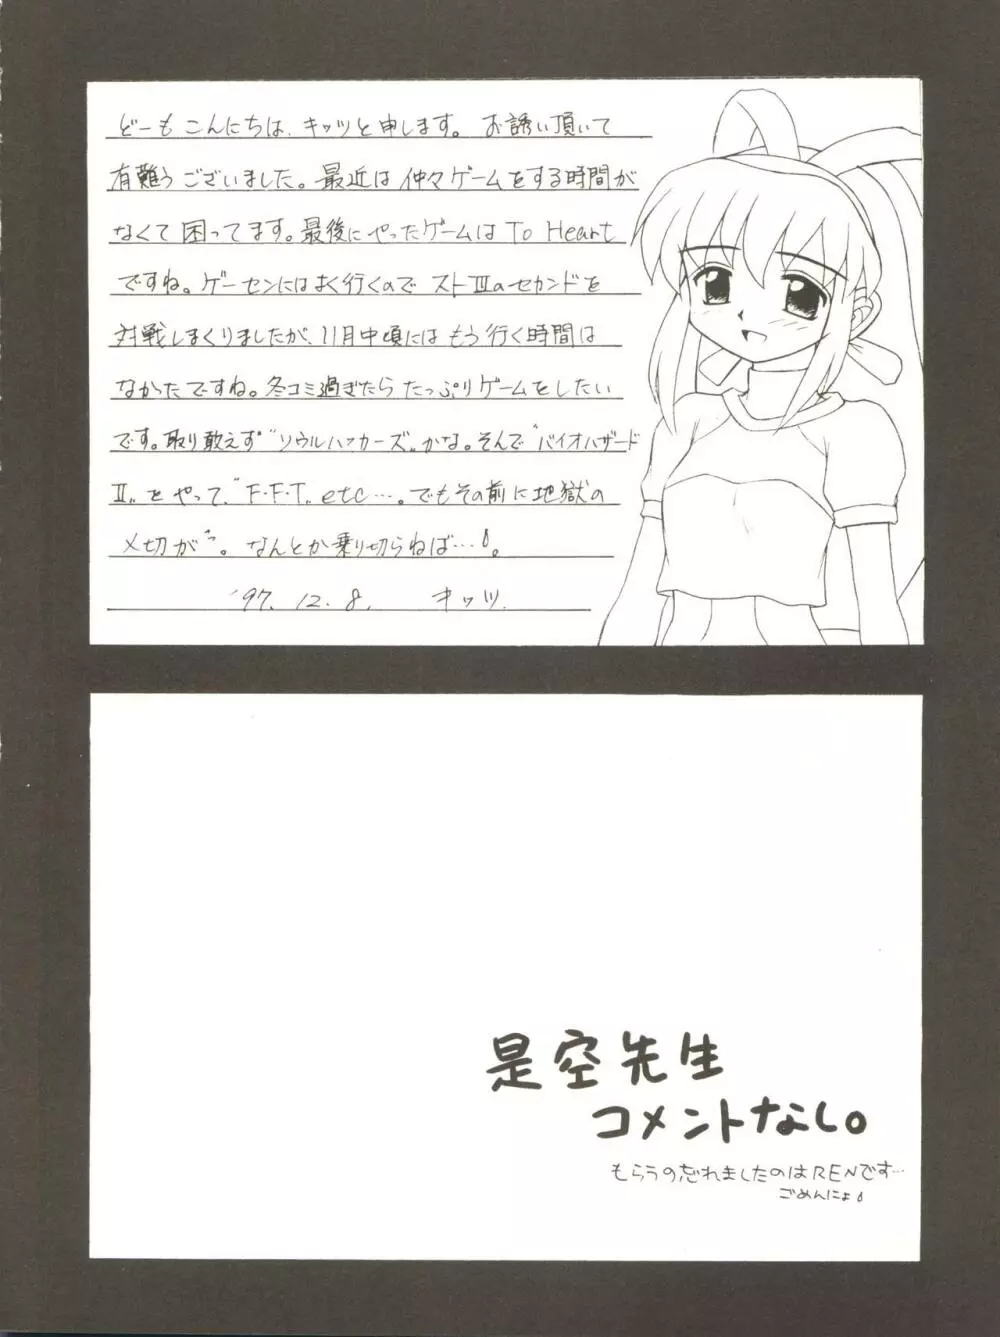 どーもこんにちは、キッツと申します。お誘い頂いて
有難うございました。最近は仲々ゲームをする時間が
なくて困ってます。最後にやったゲームは To Heart
ですね。ゲーセンにはよく行くのでストⅢのセカンドを
対戦しまくりましたが、11月中頃にはもう行く時間は
なかったですね。冬コミ過ぎたらたっぷりゲームをしたい
です。取り敢えず“ソウルハッカーズ„かな。そんで“バイオハザード
Ⅱ„をやって、“F・F・T„ etc…。でもその前に地獄の
〆切がっ。なんとか乗り切らねば…。
'97. 12. 8. キッツ
是空先生
コメントなし。
もらうの忘れましたのはRENです…
ごめんにょ